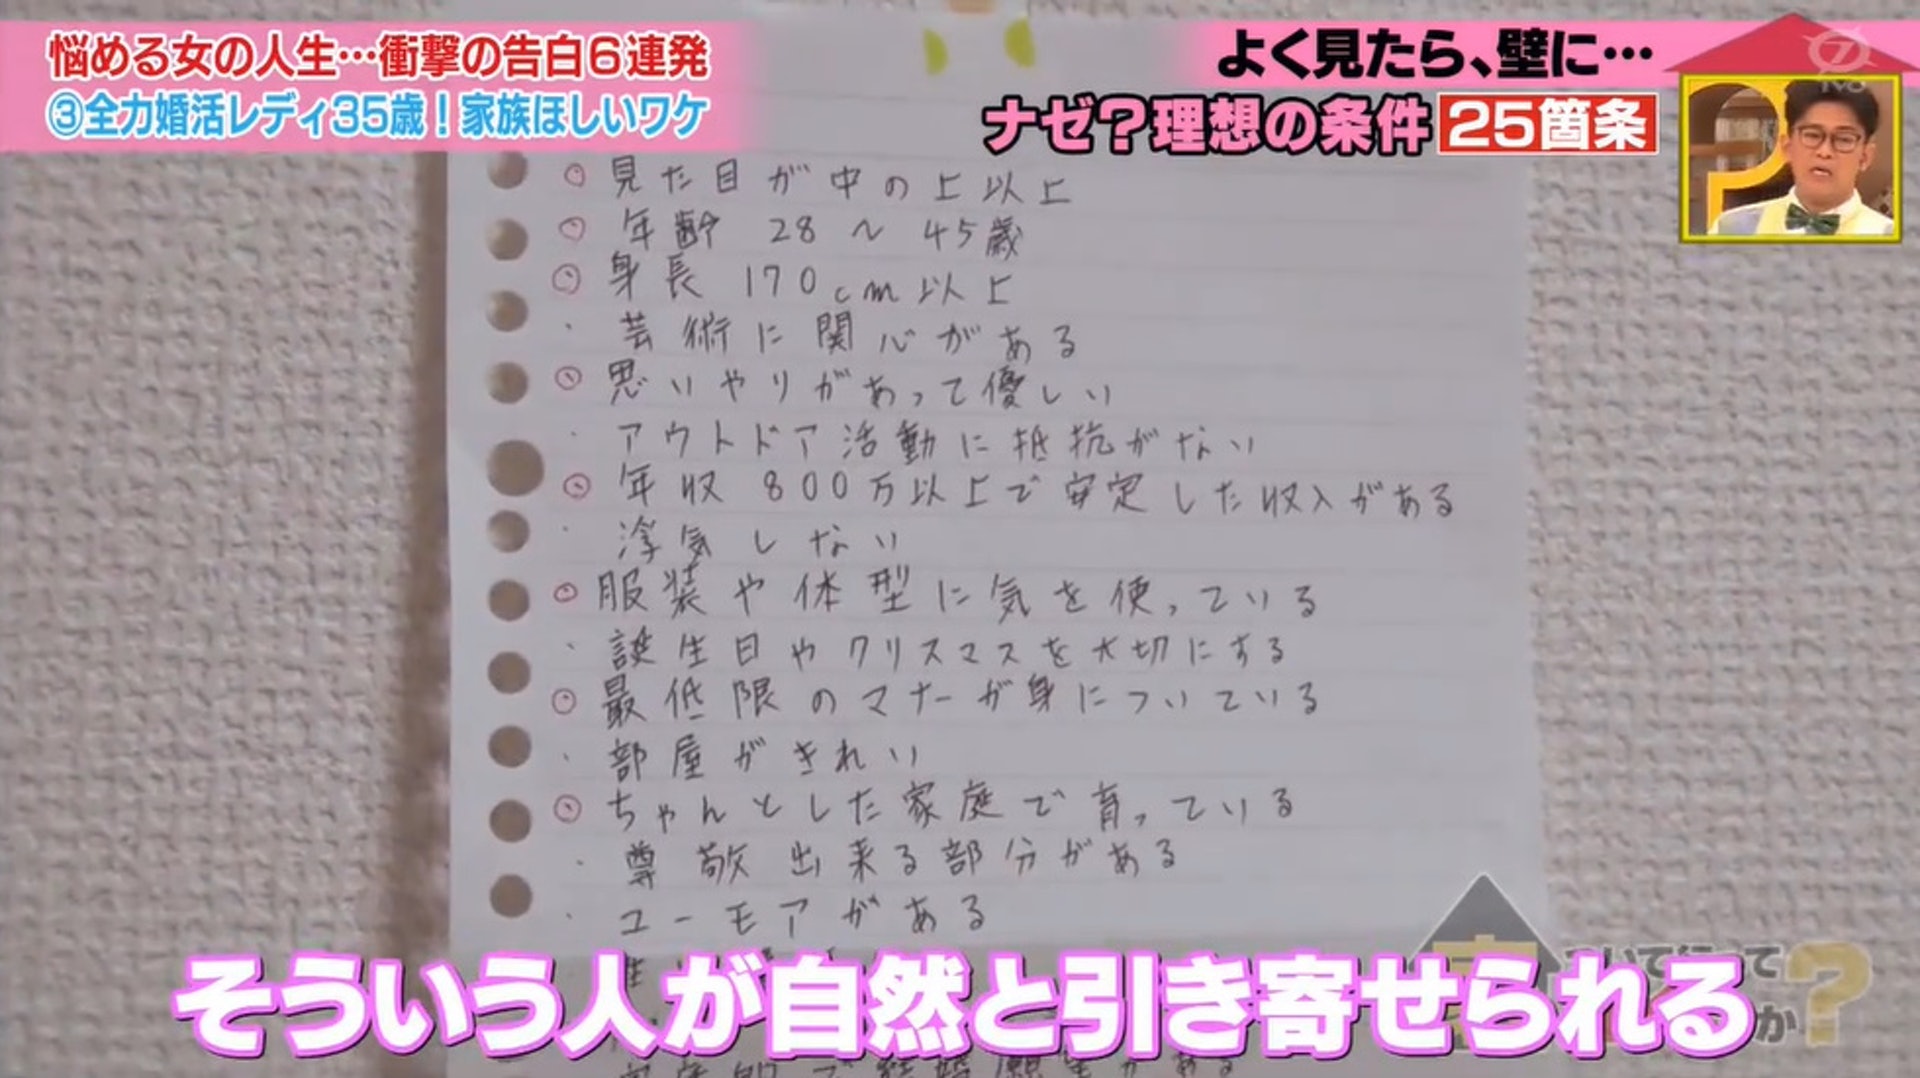 悩める女の人生…衝撃の告白6連発
③全力婚活レディ35歳！家族ほしいワケ
よく見たら、壁に…
ナゼ?理想の条件 25箇条
見た目が中の上以上
年齢 28～45歳
身長 170cm以上
・芸術に関心がある
思いやりがあって優しい
・アウトドア活動に抵抗がない
年収 800万以上で安定した収入がある
・浮気しない
服装や体型に気を使っている
・誕生日やクリスマスを大切にする
最低限のマナーが身についている
・部屋がきれい
ちゃんとした家庭で育っている
・尊敬出来る部分がある
・ユーモアがある
そういう人が自然と引き寄せられる